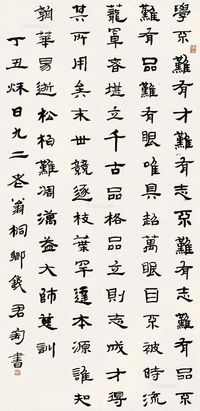 學不難有才難有志不難有志難有品不
難有品難有眼唯具超萬眼目不被時流
籠罩者堪立千古品格品立則志成才得
其所用矣末世競逐枝葉罕達本源誰知
華易逝松柏難凋益大師訓
丁丑秋日九二老翁桐鄉錢君匋書